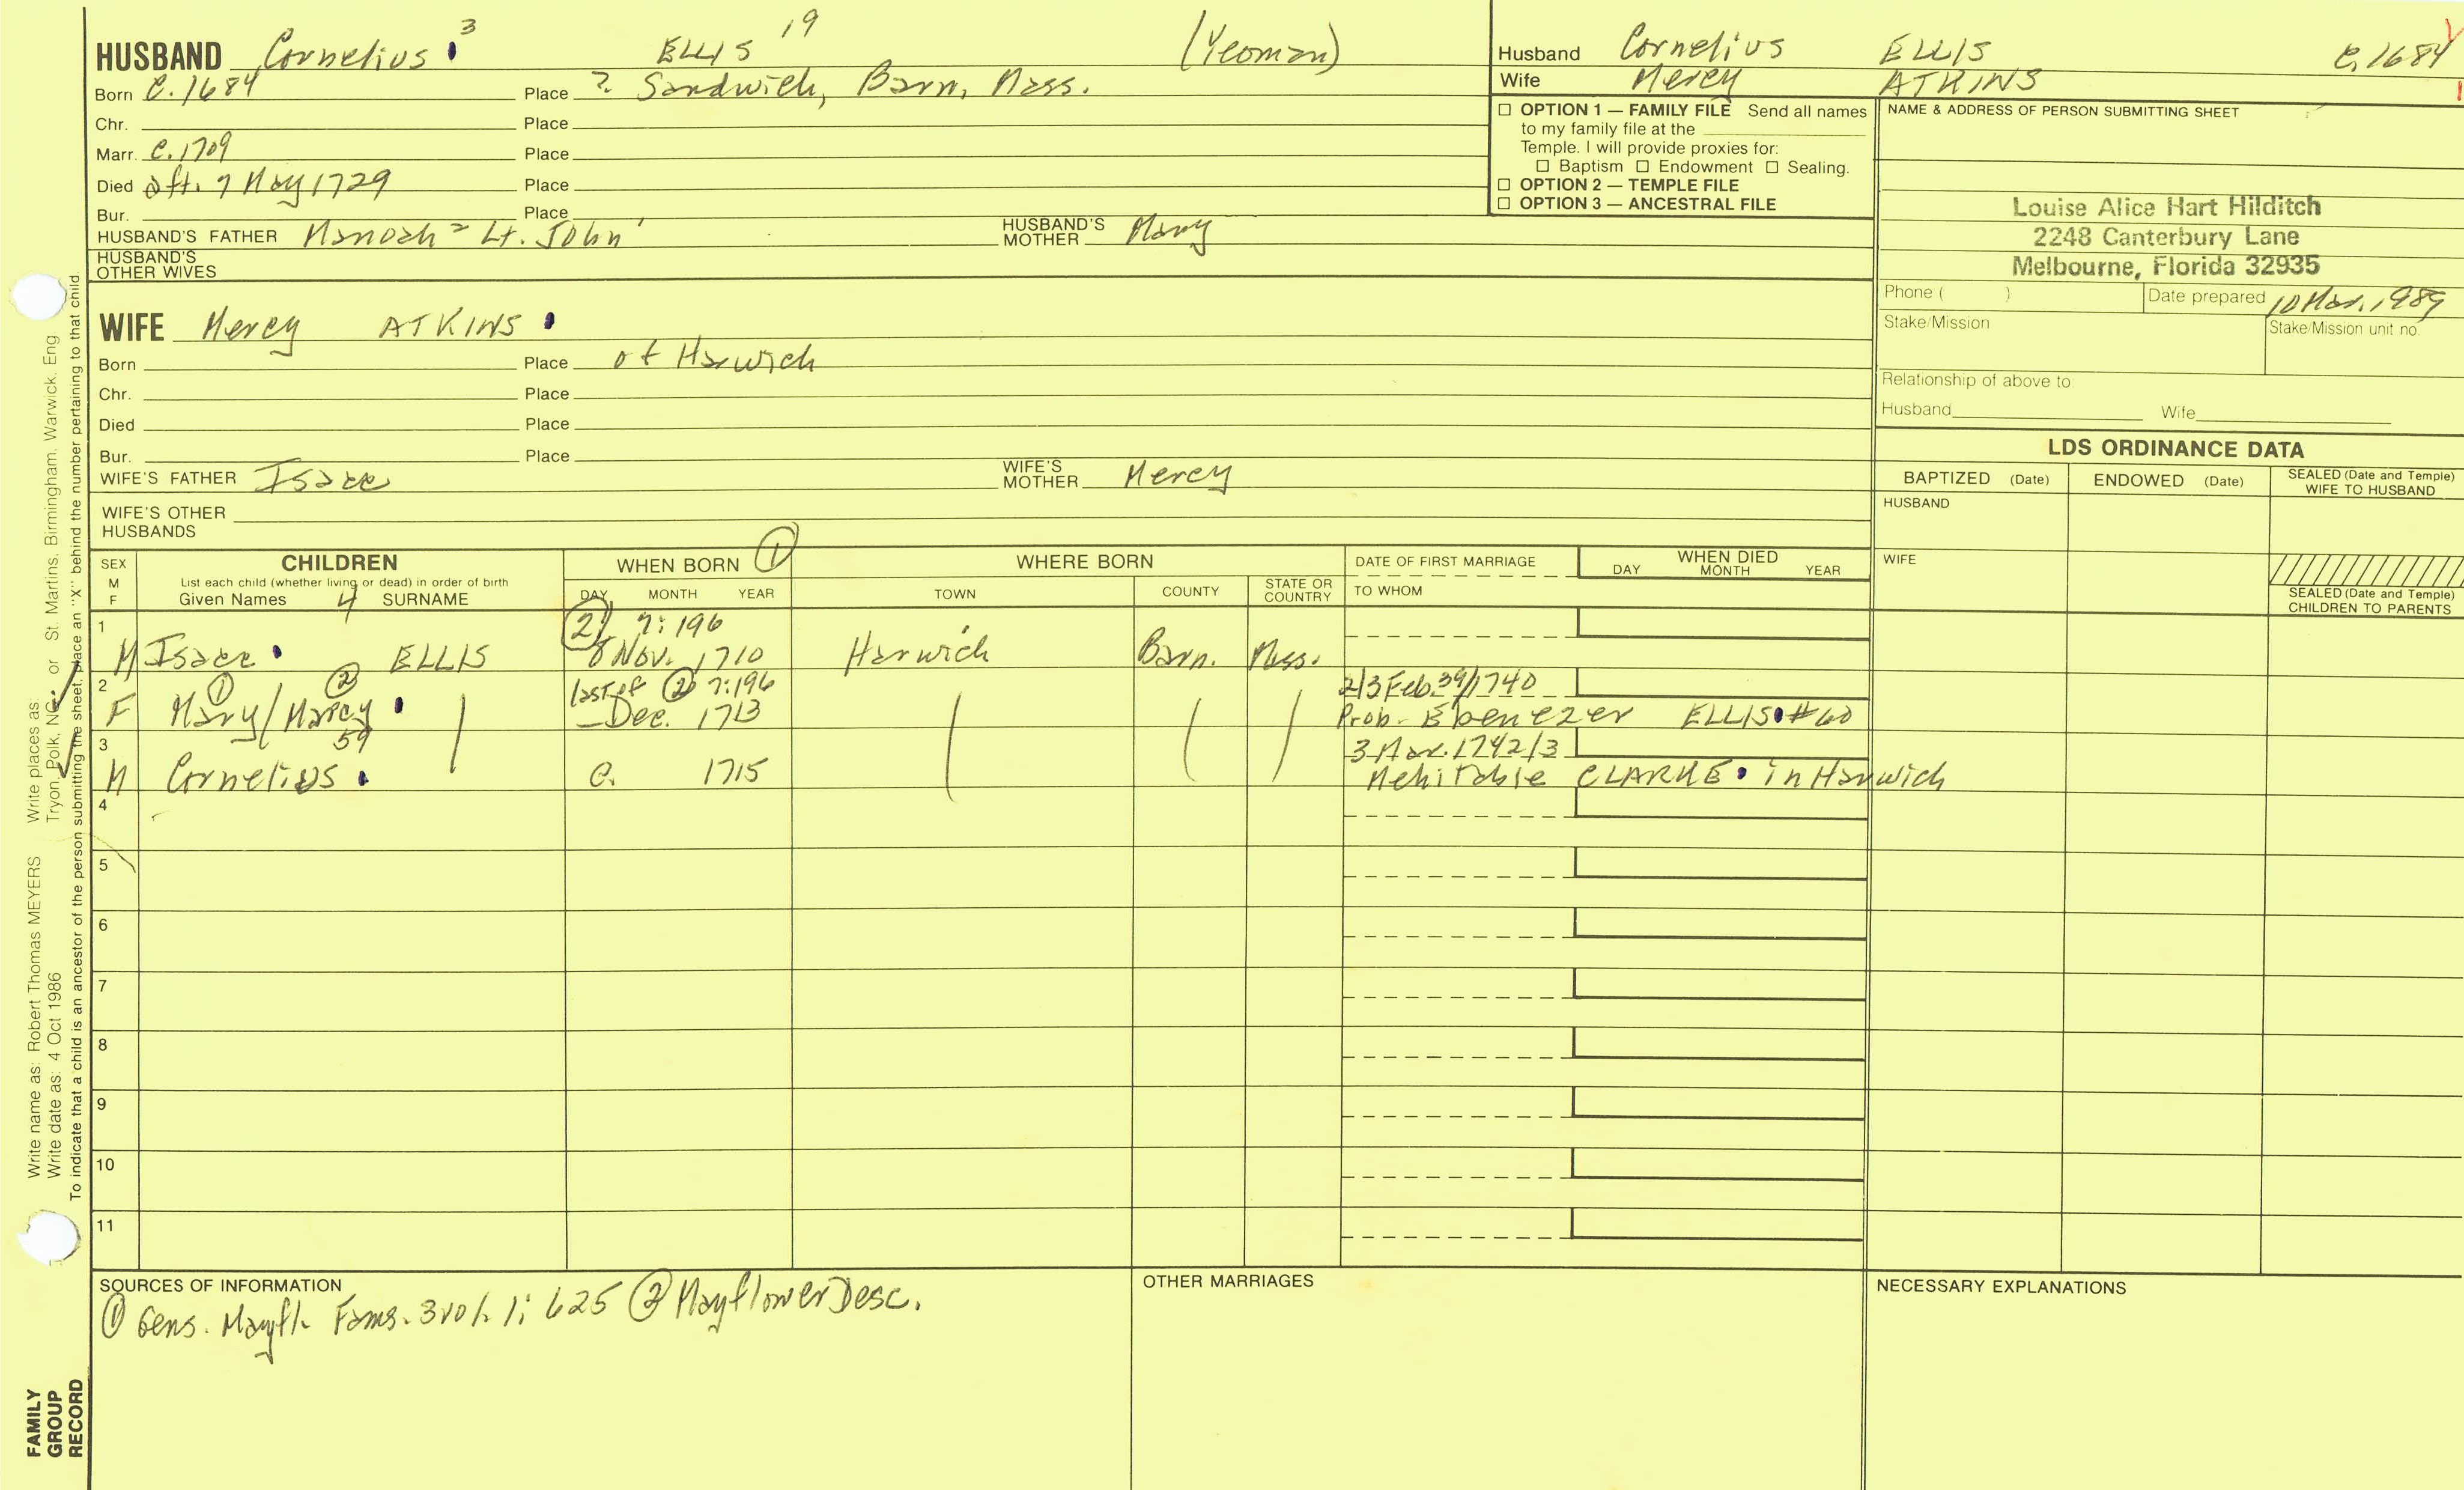 HUSBAND Cornelius 3 ELLIS 19 (Yeoman)
Born C. 1684 Place ? Sandwich, Barn, Mass.
Chr. Place
Marr. C. 1709 Place
Died aft. 7 May 1729 Place
Bur. Place
HUSBAND'S FATHER Manoah 2 Lt. John 1 HUSBAND'S MOTHER Mary
HUSBAND'S OTHER WIVES
WIFE Mercy ATKINS
Born Place of Harwich
Chr. Place
Died Place
Bur. Place
WIFE'S FATHER Isaac WIFE'S MOTHER Mercy
WIFE'S OTHER HUSBANDS
Husband Cornelius ELLIS C. 1684
Wife Mercy ATKINS
☐ OPTION 1 — FAMILY FILE Send all names
to my family file at the
Temple. I will provide proxies for:
☐ Baptism ☐ Endowment ☐ Sealing.
☐ OPTION 2 — TEMPLE FILE
☐ OPTION 3 — ANCESTRAL FILE
NAME & ADDRESS OF PERSON SUBMITTING SHEET
Louise Alice Hart Hilditch
2248 Canterbury Lane
Melbourne, Florida 32935
Phone ( ) Date prepared 10 Mar. 1989
Stake/Mission Stake/Mission unit no.
Relationship of above to:
Husband Wife
LDS ORDINANCE DATA
BAPTIZED (Date) ENDOWED (Date) SEALED (Date and Temple) WIFE TO HUSBAND
HUSBAND
WIFE
SEALED (Date and Temple) CHILDREN TO PARENTS
SEX M F
CHILDREN
List each child (whether living or dead) in order of birth
Given Names 4 SURNAME
WHEN BORN ①
DAY MONTH YEAR
WHERE BORN
TOWN COUNTY STATE OR COUNTRY
DATE OF FIRST MARRIAGE
TO WHOM
WHEN DIED
DAY MONTH YEAR
1 ② 7:196
M Isaac ELLIS 8 Nov. 1710 Harwich Barn. Mass.
2 ① ② last of ② 7:196 2/3 Feb. 39/1740
F Mary/Marcy Dec. 1713 Prob. Ebenezer ELLIS #60
3 59 3 Mar. 1742/3
M Cornelius C. 1715 Mehitable CLARKE in Harwich
4
5
6
7
8
9
10
11
SOURCES OF INFORMATION
① Gens. Mayfl. Fams. 3 vol. 1: 625 ② Mayflower Desc.
OTHER MARRIAGES
NECESSARY EXPLANATIONS
Write name as: Robert Thomas MEYERS Write places as:
Write date as: 4 Oct 1986 Tryon, Polk, NC or St. Martins, Birmingham, Warwick, Eng
To indicate that a child is an ancestor of the person submitting the sheet, place an "X" behind the number pertaining to that child.
FAMILY
GROUP
RECORD